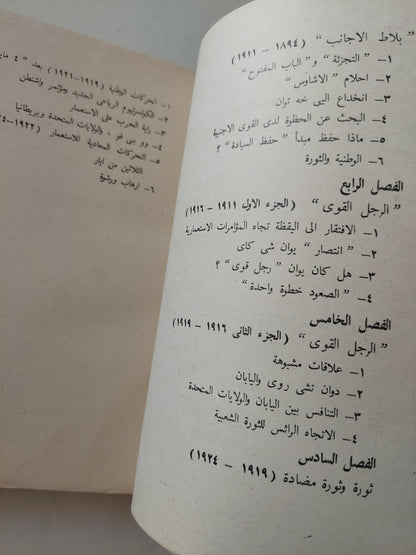 " بلاط الاجانب " (١٨٩٤ – ١٩١١)
١– " التجزئة " و " الباب المفتوح "
٢– احلام " الاشاوس "
٣– انخداع اليى خه توان
٤– البحث عن الحظوة لدى القوى الاجنبية
٥– ماذا حفظ مبدأ " حفظ السيادة " ؟
٦– الوطنية والثورة
الفصل الرابع
" الرجل القوى " (الجزء الاول ١٩١١ – ١٩١٦)
١– الافتقار الى اليقظة تجاه المؤامرات الاستعمارية
٢– " انتصار " يوان شى كاى
٣– هل كان يوان " رجل قوى " ؟
٤– " الصعود خطوة واحدة "
الفصل الخامس
" الرجل القوى " (الجزء الثانى ١٩١٦ – ١٩١٩)
١– علاقات مشبوهة
٢– دوان تشى روى واليابان
٣– التنافس بين اليابان والولايات المتحدة
٤– الاتجاه الرائس للثورة الشعبية
الفصل السادس
ثورة وثورة مضادة (١٩١٩ – ١٩٢٤)
١– الحركات الوطنية (١٩١٩–١٩٢١) بعد " ٤ مايو
الكونسرتيوم الرباعى الجديد ومؤتمر واشنطن
راية الحرب على الاستعمار
وو بى فو ، والولايات المتحدة وبريطانيا
التحركات المعادية للاستعمار (١٩٢٢–
الثلاثين من ايار
٦– ارهاب ورشوة